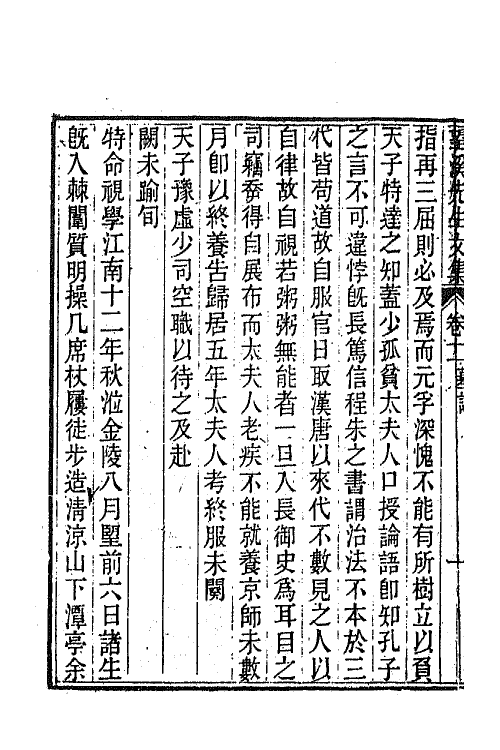 望溪先生文集 卷十一 墓誌 十
指再三屈則必及焉而元孚深愧不能有所樹立以負
天子特達之知蓋少孤貧太夫人口授論語卽知孔子
之言不可違悖旣長篤信程朱之書謂治法不本於三
代皆苟道故自服官日取漢唐以來代不數見之人以
自律故自視若粥粥無能者一旦入長御史爲耳目之
司竊喬得自展布而太夫人老疾不能就養京師未數
月卽以終養告歸居五年太夫人考終服未闋
天子豫虛少司空職以待之及赴
闕未踰旬
特命視學江南十二年秋涖金陵八月朢前六日諸生
旣入棘闈質明操几席杖屨徒步造淸涼山下潭亭余